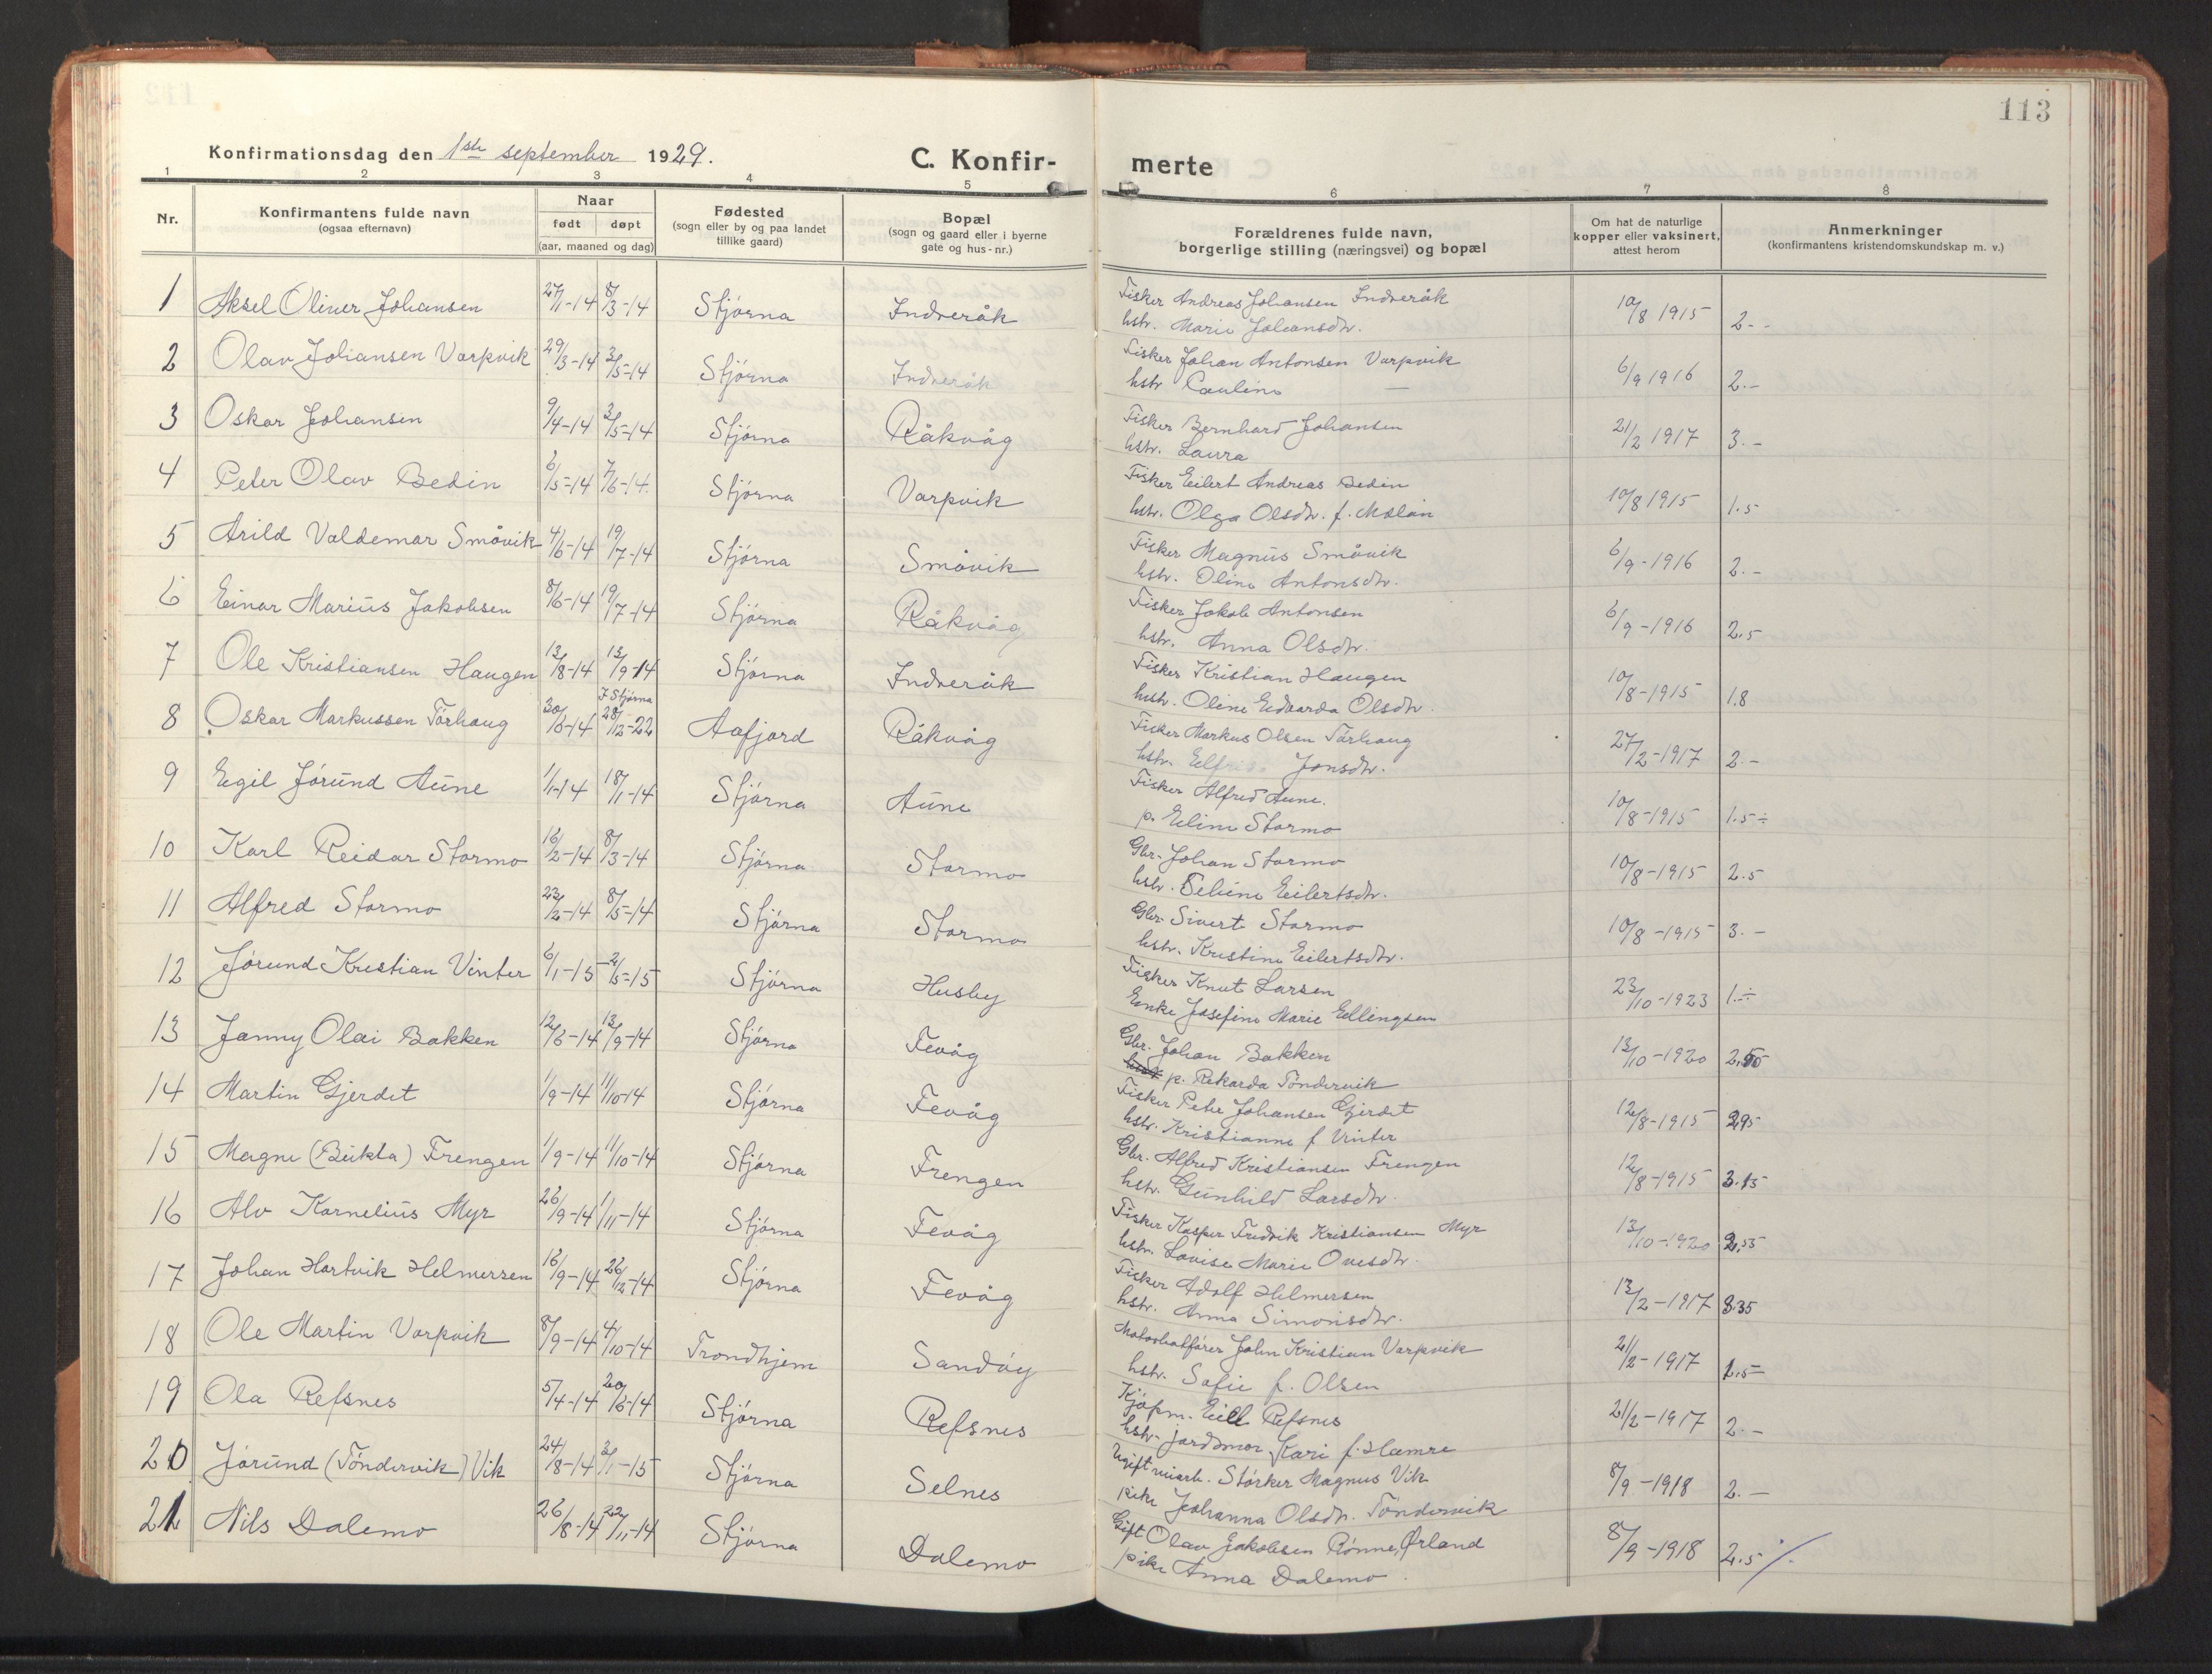 113
Konfirmationsdag den 1ste september 1929.
C. Konfir-
merte
1 2 3 4 5 6 7 8
Nr.
Konfirmantens fulde navn
(ogsaa efternavn)
Naar
født døpt
(aar, maaned og dag)
Fødested
(sogn eller by og paa landet
tillike gaard)
Bopæl
(sogn og gaard eller i byerne
gate og hus-nr.)
Forældrenes fulde navn,
borgerlige stilling (næringsvei) og bopæl
Om hat de naturlige
kopper eller vaksinert,
attest herom
Anmerkninger
(konfirmantens kristendomskundskap m. v.)
1 Aksel Oliver Johansen 27/1-14 8/3-14 Stjørna Indreråk Fisker Andreas Johansen Indreråk 10/8 1915 2.-
hstr. Marie Johansdtr.
2 Olav Johansen Varpvik 29/3-14 3/5-14 Stjørna Indreråk Fisker Johan Antonsen Varpvik 6/9 1916 2.-
hstr Pauline —
3 Oskar Johansen 9/4-14 3/5-14 Stjørna Råkvåg Fisker Bernhard Johansen 21/2 1917 3.-
hstr. Laura
4 Peter Olav Bedin 6/5-14 7/6-14. Stjørna Varpvik Fisker Eilert Andreas Bedin 10/8 1915 1.5
hstr. Olga Olsdtr. f. Mælan
5 Arild Valdemar Småvik 4/6-14 19/7-14 Stjørna Småvik Fisker Magnus Småvik 6/9-1916 2.-
hstr. Oline Antonsdtr.
6 Einar Marius Jakobsen 8/6-14 19/7-14 Stjørna Råkvåg Fisker Jakob Antonsen 6/9-1916 2.5
hstr. Anna Olsdtr.
7 Ole Kristiansen Haugen 13/8-14 13/9-14 Stjørna Indreråk Fisker Kristian Haugen 10/8-1915 1.8
hustr. Oline Edvarda Olsdtr.
I Stjørna
8 Oskar Markussen Tårhaug 30/6-14 28/12-22 Aafjord Råkvåg Fisker Markus Olsen Tårhaug 27/2-1917 2.-
hstr. Jonsdtr.
9 Egil Jörund Aune 1/1-14 18/1-14 Stjørna Aune Fisker Alfred Aune. 10/8-1915 1.5÷
p. Eline Stormo
10 Karl Reidar Stormo 16/2-14 8/3-14 Stjørna Stormo Gbr. Johan Stormo 10/8-1915 2.5
hstr. Seline Eilertsdtr.
11 Alfred Stormo 23/2-14 8/5-14 Stjørna Stormo Gbr. Sivert Stormo 10/8-1915 3.-
hstr. Kristine Eilertsdtr.
12 Jörund Kristian Vinter 6/1-15 2/5-15 Stjørna Husby Fisker Knut Larsen 23/10-1923 1.÷
Enke Josefine Marie Ellingsen
13 Janny Olai Bakken 12/6-14 13/9-14 Stjørna Fevåg Gbr. Johan Bakken 13/10-1920
p. Rikarda Tøndervik
14 Martin Gjerdet 1/9-14 11/10-14 Stjørna Fevåg Fisker Peter Johansen Gjerdet 12/8-1915
hstr. Kristianne f Vinter
15 Magne (Bukta) Frengen 1/9-14 11/10-14 Stjørna Frengen Gbr. Alfred Kristiansen Frengen 12/8-1915
hstr. Gunhild Larsdtr.
16 Alv Kornelius Myr 26/9-14 1/11-14 Stjørna Fevåg Fisker Kasper Fredrik Kristiansen Myr 13/10-1920
hstr. Lovise Marie Ovesdtr.
17 Johan Hartvik Helmersen 16/9-14 26/12-14 Stjørna Fevåg Fisker Adolf Helmersen 13/2-1917
hstr. Anna Simonsdtr.
18 Ole Martin Varpvik 8/9-14 4/10-14 Trondhjem Sandøy Motorbåtfører John Kristian Varpvik 21/2-1917
hstr. Sofie f. Olsen
19 Ola Refsnes 5/4-14 20/6-14 Stjørna Refsnes Kjøpm. Eill Refsnes 21/2-1917 2.-
hstr. jordmor Kari f. Hamre
20 Jörund (Tøndervik) Vik 24/8-14 3/1-15 Stjørna Selnes Ugift Størker Magnus Vik 8/9-1918 2.-
pike Johanna Olsdtr. Tøndervik
21 Nils Dalemo 26/8-14 22/11-14 Stjørna Dalemo Gift Olav Jakobsen Rønne, Ørland 8/9-1918 2.5
pike Anna Dalemo.